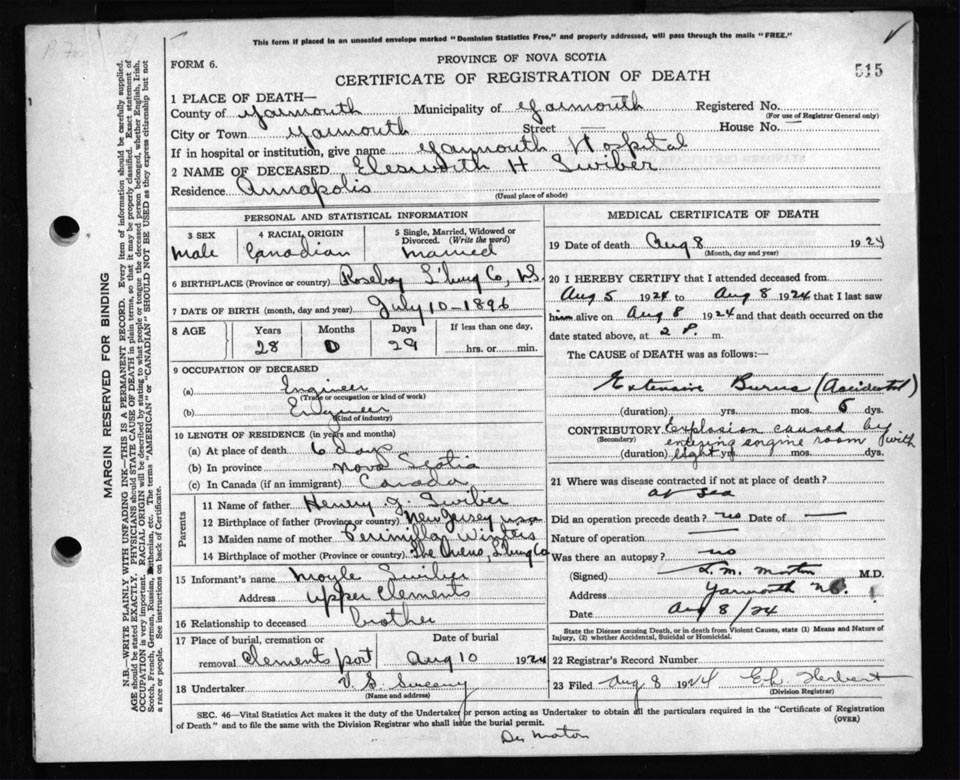 This form if placed in an unsealed envelope marked "Dominion Statistics Free," and properly addressed, will pass through the mails "FREE."
FORM 6.
PROVINCE OF NOVA SCOTIA
CERTIFICATE OF REGISTRATION OF DEATH
515
1 PLACE OF DEATH—
County of Yarmouth Municipality of Yarmouth Registered No.
(For use of Registrar General only)
City or Town Yarmouth Street — House No. —
If in hospital or institution, give name Yarmouth Hospital
2 NAME OF DECEASED Elesworth H Swiber
Residence Annapolis
(Usual place of abode)
PERSONAL AND STATISTICAL INFORMATION
3 SEX
Male
4 RACIAL ORIGIN
Canadian
5 Single, Married, Widowed or Divorced. (Write the word)
Married
6 BIRTHPLACE (Province or country) Rosebay L'burg Co, N.S.
7 DATE OF BIRTH (month, day and year) July 10-1896
8 AGE
Years Months Days If less than one day,
28 0 29 hrs. or min.
9 OCCUPATION OF DECEASED
(a) Engineer
(Trade or occupation or kind of work)
(b) Engineer
(Kind of industry)
10 LENGTH OF RESIDENCE (in years and months)
(a) At place of death 6 days
(b) In province Nova Scotia
(c) In Canada (if an immigrant) Canada
Parents
11 Name of father Henry J. Swiber
12 Birthplace of father (Province or country) New Jersey USA
13 Maiden name of mother Perimilla Winters
14 Birthplace of mother (Province or country) The Ovens, L'burg Co
15 Informant's name Moyle Swiber
Address Upper Clements
16 Relationship to deceased brother
17 Place of burial, cremation or removal Clementsport
Date of burial
Aug 10 1924
18 Undertaker V. S. Sweeny
(Name and address)
MEDICAL CERTIFICATE OF DEATH
19 Date of death Aug 8 1924
(Month, day and year)
20 I HEREBY CERTIFY that I attended deceased from
Aug 5 1924 to Aug 8 1924 that I last saw
him alive on Aug 8 1924 and that death occurred on the
date stated above, at 2 P. m.
The CAUSE of DEATH was as follows:
Extensive Burns (Accidental)
(duration) yrs. mos. 6 dys.
CONTRIBUTORY Explosion caused by
(Secondary) entering engine room with
(duration) light yrs. mos. dys.
21 Where was disease contracted if not at place of death?
at sea
Did an operation precede death? no Date of —
Nature of operation —
Was there an autopsy? no
(Signed) L. M. Morton M.D.
Address Yarmouth N.S.
Date Aug 8/24
State the Disease causing Death, or in death from Violent Causes, state (1) Means and Nature of Injury, (2) whether Accidental, Suicidal or Homicidal.
22 Registrar's Record Number
23 Filed Aug 8 1924 E.L. Herbert
(Division Registrar)
SEC. 46—Vital Statistics Act makes it the duty of the Undertaker or person acting as Undertaker to obtain all the particulars required in the "Certificate of Registration
of Death" and to file the same with the Division Registrar who shall issue the burial permit. (OVER)
MARGIN RESERVED FOR BINDING
N.B.—WRITE PLAINLY WITH UNFADING INK—THIS IS A PERMANENT RECORD. Every item of information should be carefully supplied.
AGE should be stated EXACTLY. PHYSICIANS should STATE CAUSE OF DEATH in plain terms, so that it may be properly classified. Exact statement of
OCCUPATION is very important. RACIAL ORIGIN will be described by stating to what people or tongue the deceased person belonged, whether English, Irish,
Scotch, French, German, Russian, Ruthenian, etc. The terms "AMERICAN" or "CANADIAN" SHOULD NOT BE USED as they express citizenship but not
a race or people. See instructions on back of Certificate.